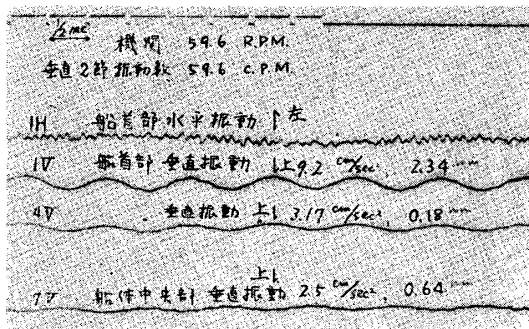 ½ sec
機関 59.6 R.P.M.
垂直2節振動数 59.6 C.P.M.
1H 船首部水平振動 ↑左
1V 船首部 垂直振動 ↓上 9.2 cm/sec², 2.34 mm
4V 〃 垂直振動 上↓ 3.17 cm/sec², 0.18 mm
7V 船体中央部 垂直振動 上↓ 2.5 cm/sec², 0.64 mm